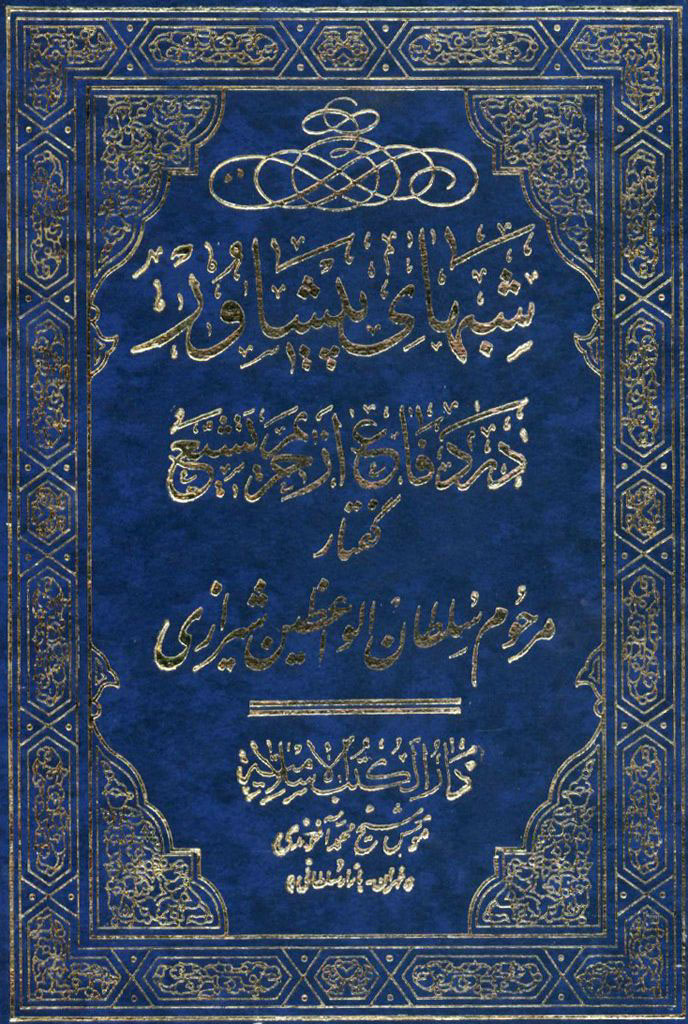 شبهای پیشاور
در دفاع از حریم تشیع
گفتار
مرحوم سلطان الواعظین شیرازی
دار الکتب الاسلامیة
شیخ محمد آخوندی
تهران - بازار سلطانی